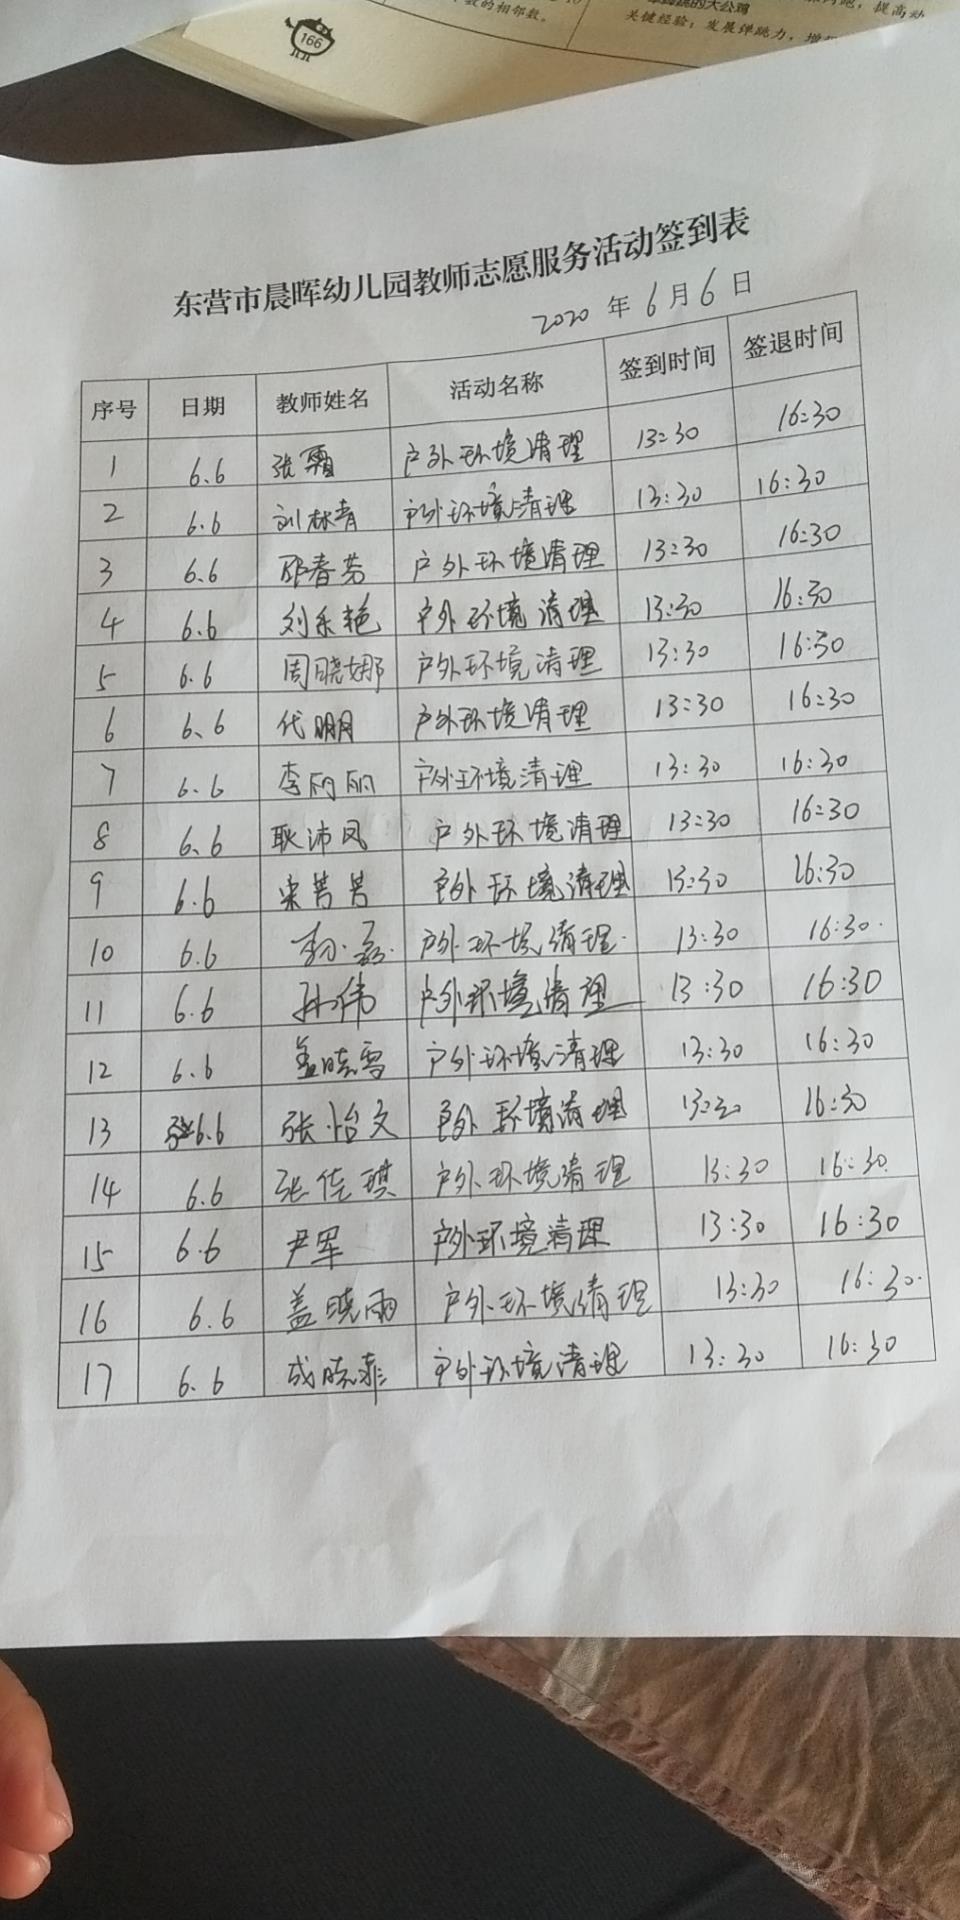 数的相邻数。
的大公鸡
关键经验：发展弹跳力，增
提高
166
东营市晨晖幼儿园教师志愿服务活动签到表
2020 年 6 月 6 日
序号 日期 教师姓名 活动名称 签到时间 签退时间
1 6.6 张霜 户外环境清理 13:30 16:30
2 6.6 刘林青 户外环境清理 13:30 16:30
3 6.6 邵春芳 户外环境清理 13:30 16:30
4 6.6 刘东艳 户外环境清理 13:30 16:30
5 6.6 周晓娜 户外环境清理 13:30 16:30
6 6.6 代明月 户外环境清理 13:30 16:30
7 6.6 李丽丽 户外环境清理 13:30 16:30
8 6.6 耿沛凤 户外环境清理 13:30 16:30
9 6.6 宋菁菁 户外环境清理 13:30 16:30
10 6.6 户外环境清理 13:30 16:30
11 6.6 孙伟 户外环境清理 13:30 16:30
12 6.6 盖晓雪 户外环境清理 13:30 16:30
13 6.6 张怡文 户外环境清理 13:30 16:30
14 6.6 张佳琪 户外环境清理 13:30 16:30
15 6.6 尹军 户外环境清理 13:30 16:30
16 6.6 盖晓雨 户外环境清理 13:30 16:30
17 6.6 成晓菲 户外环境清理 13:30 16:30